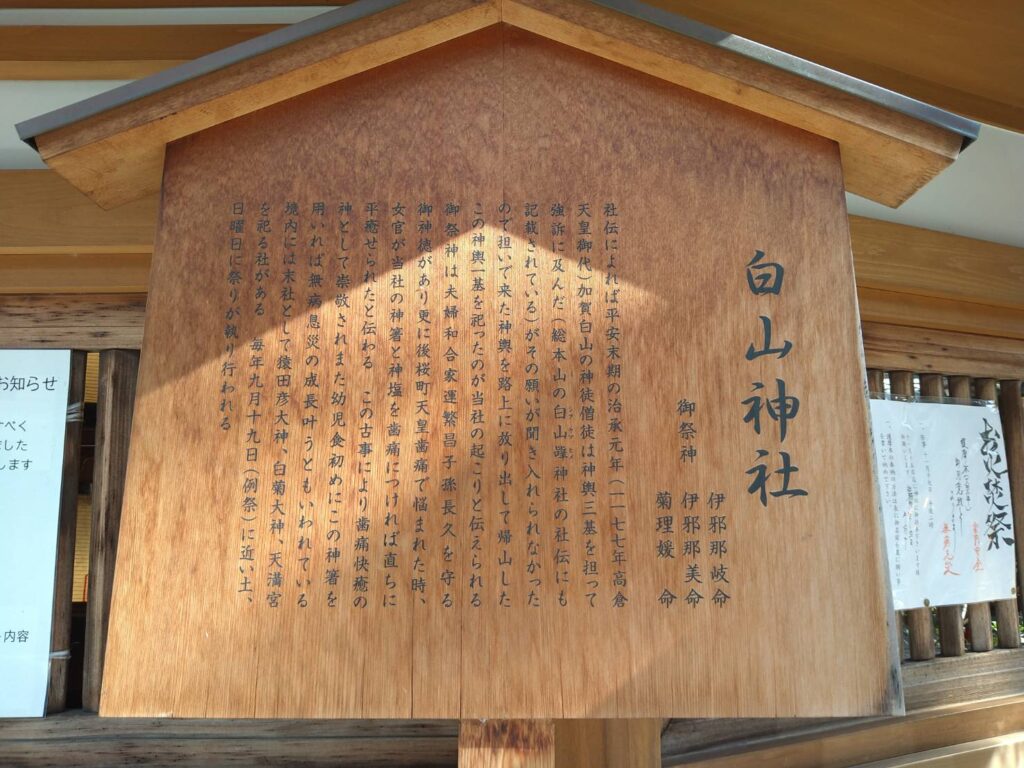 白山神社
御祭神
伊邪那岐命
伊邪那美命
菊理媛命
社伝によれば平安末期の治承元年(一一七七年高倉
天皇御代)加賀白山の神徒僧徒は神輿三基を担って
強訴に及んだ(総本山の白山
神社の社伝にも
記載されている)がその願いが聞き入れられなかった
ので担いで来た神輿を路上に放り出して帰山した
この神輿一基を祀ったのが当社の起こりと伝えられる
御祭神は夫婦和合家運繁昌子孫長久を守る
御神徳があり更に後桜町天皇歯痛で悩まれた時、
女官が当社の神箸と神塩を歯痛につければ直ちに
平癒せられたと伝わる この古事により歯痛快癒の
神として崇敬されまた幼児食初めにこの神箸を
用いれば無病息災の成長叶うともいわれている
境内には末社として猿田彦大神、白菊大神、天満宮
を祀る社がある 毎年九月十九日(例祭)に近い土、
日曜日に祭りが執り行われる
お火焚祭
お知らせ
すべく
ました
します
内容